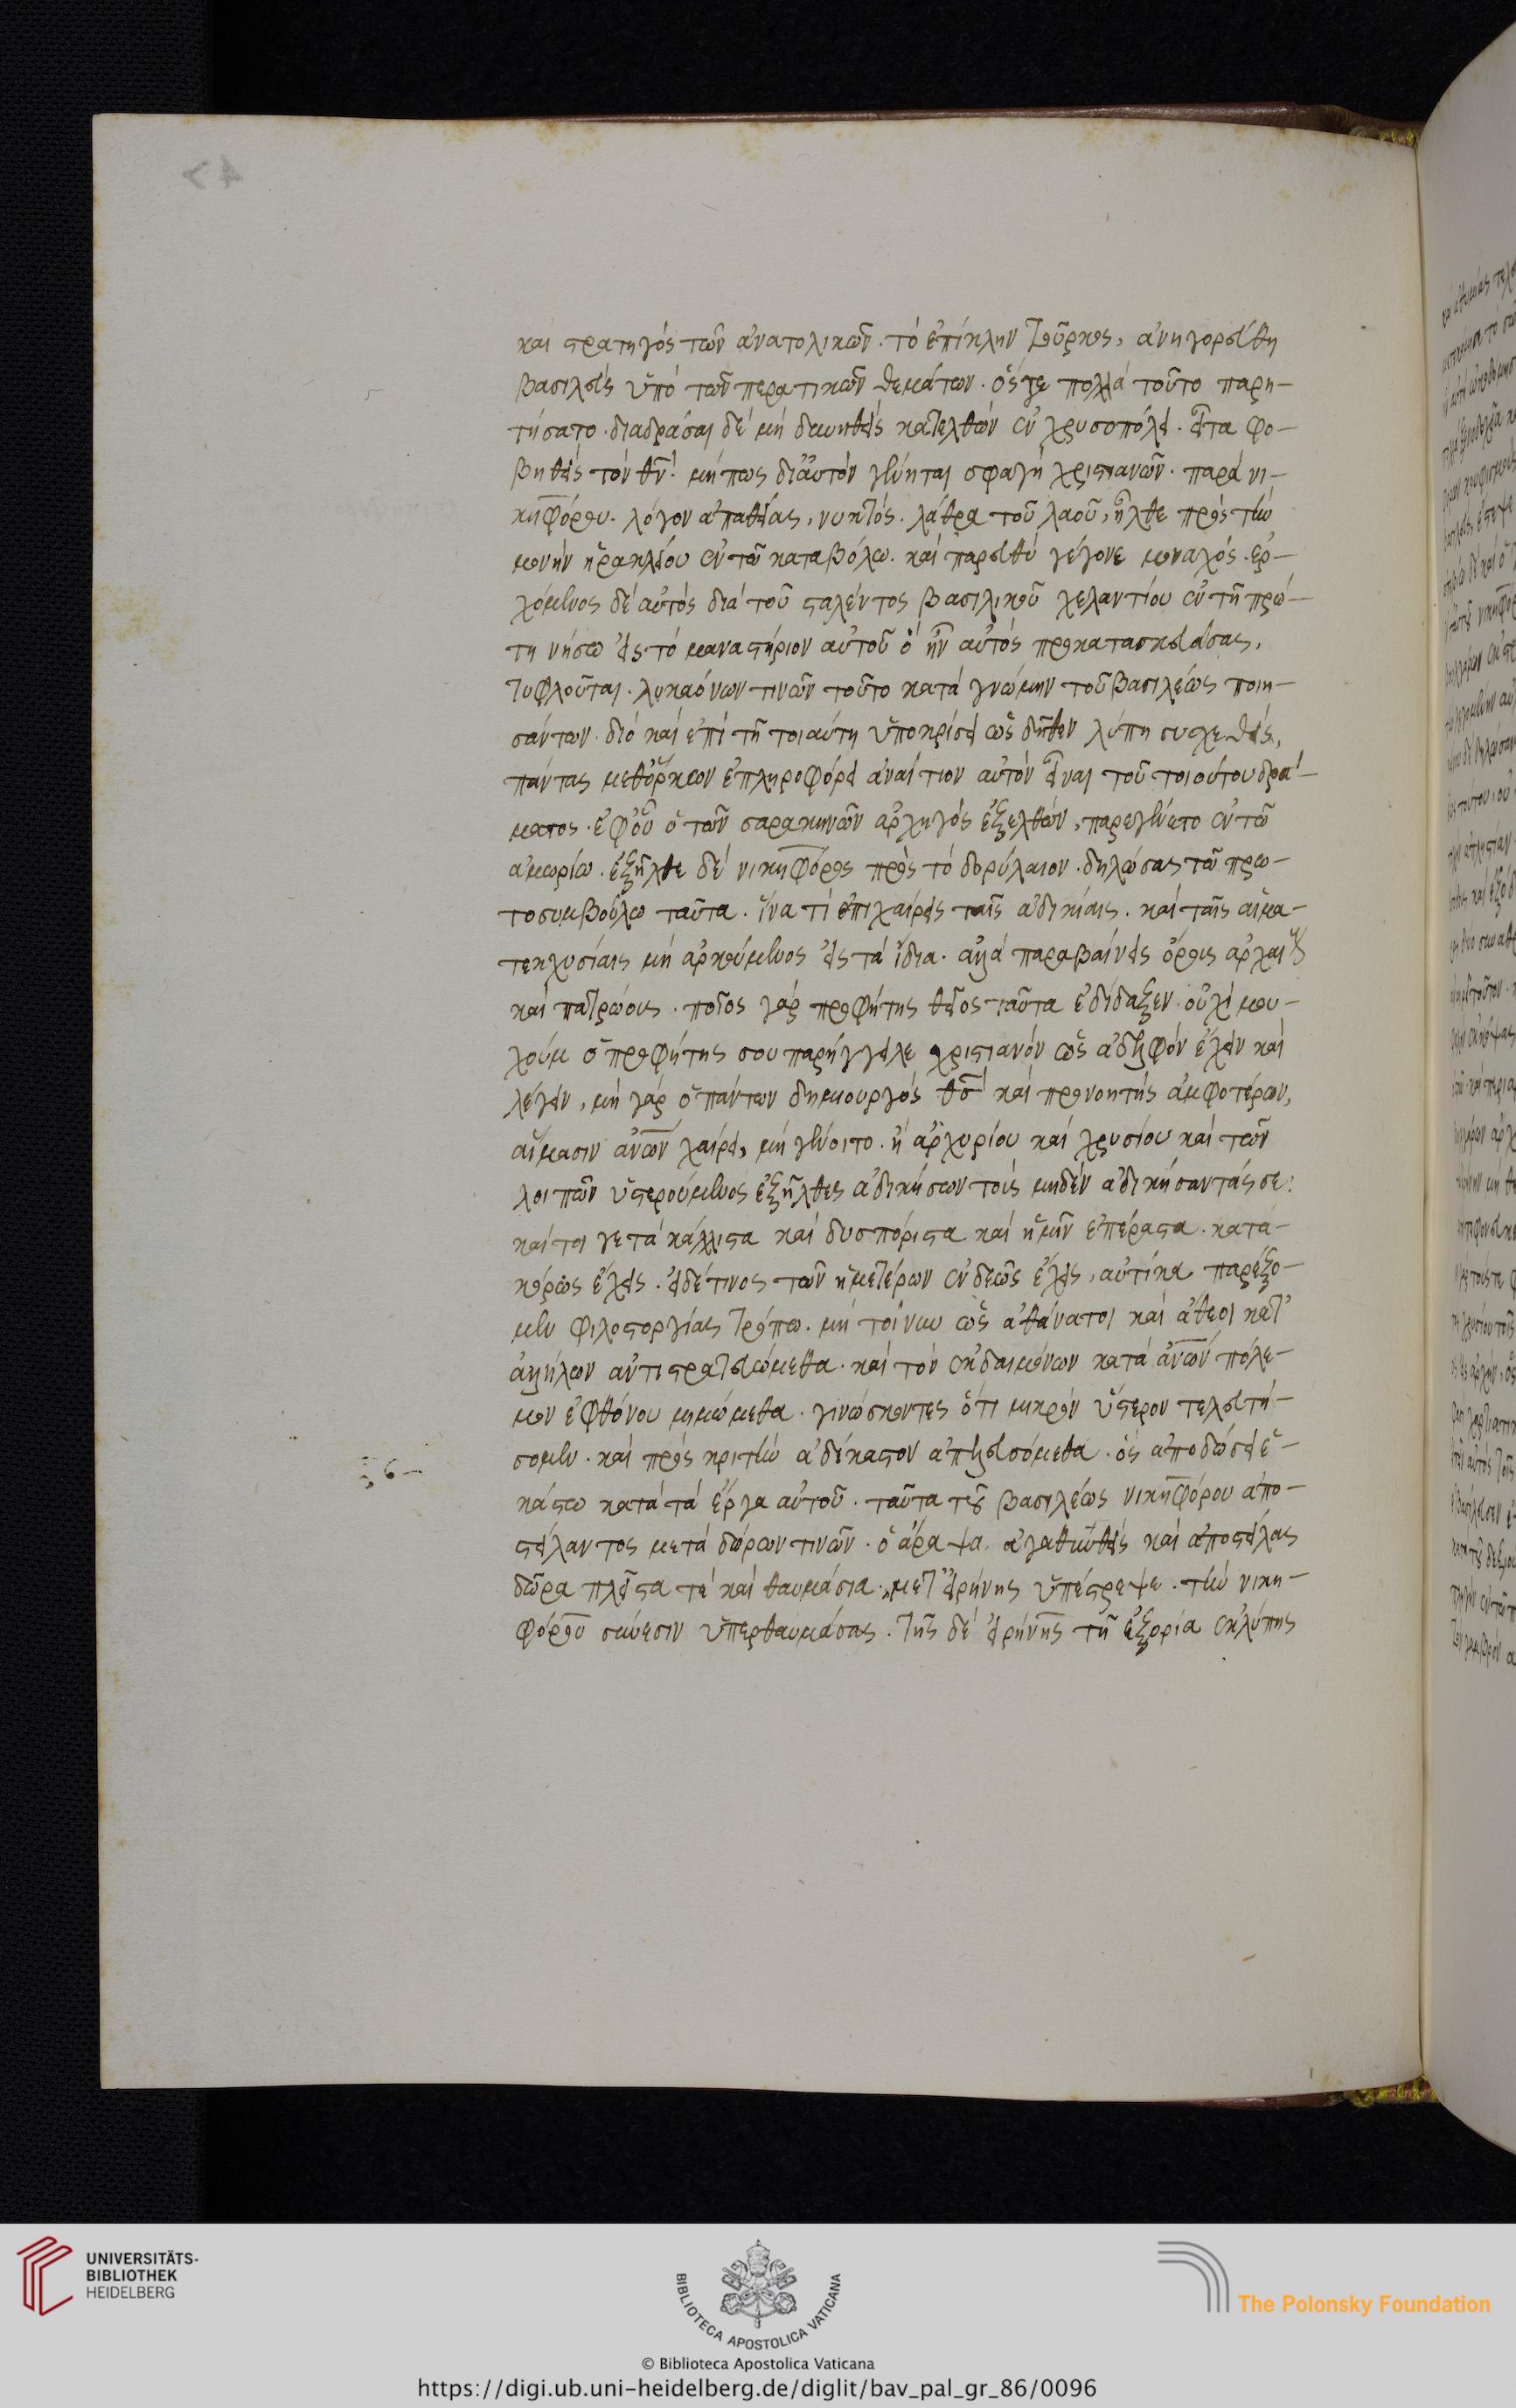 47
καὶ στρατηγὸς τῶν ἀνατολικῶν. τὸ ἐπίκλην τοῦρκος, ἀνηγορεύθη
βασιλεὺς ὑπὸ τῶν περατικῶν θεμάτων. ὅς γε πολλὰ τοῦτο παρη-
τήσατο. διαδράσαι δὲ μὴ δυνηθεὶς κατελθὼν ἐν χρυσοπόλει. εἶτα φο-
βηθεὶς τὸν θν̅. μήπως δι' αὐτὸν γένηται σφαγὴ χριστιανῶν. παρὰ νι-
κηφόρου. λόγον ἀπαθείας, νυκτός. λάθρα τοῦ λαοῦ, ἦλθε πρὸς τὴν
μονὴν ἡρακλείου ἐν τῶ καταβόλω. καὶ παρευθὺ γέγονε μοναχός. ἐρ-
χόμενος δὲ αὐτὸς διὰ τοῦ σταλέντος βασιλικοῦ χελαντίου ἐν τῆ πρώ-
τη νήσω εἰς τὸ μαναστήριον αὐτοῦ ὃ ἦν αὐτὸς προκατασκευάσας,
τυφλοῦται. λυκαόνων τινῶν τοῦτο κατὰ γνώμην τοῦ βασιλέως ποιη-
σάντων. διὸ καὶ ἐπὶ τῆ τοιαύτη ὑποκρίσει ὡς δῆθεν λύπη συσχεθείς,
πάντας μεθ' ὅρκων ἐπληροφόρει ἀναίτιον αὐτὸν εἶναι τοῦ τοιούτου δρά-
ματος. ἐφ' οὗ ὁ τῶν σαρακηνῶν ἀρχηγὸς ἐξελθών, παρεγένετο ἐν τῶ
ἀμωρίω. ἐξῆλθε δὲ νικηφόρος πρὸς τὸ δορύλαιον. δηλώσας τῶ πρω-
τοσυμβούλω ταῦτα. ἵνα τί ἐπιχαίρεις ταῖς ἀδικίαις. καὶ ταῖς αἱμα-
τεκχυσίαις μὴ ἀρκούμενος εἰς τὰ ἴδια. ἀλλὰ παραβαίνεις ὅρους ἀρχαι
καὶ πατρώους. ποῖος γὰρ προφήτης θεῖος ταῦτα ἐδίδαξεν. οὐχὶ μου-
χοὺμ ὁ προφήτης σου παρήγγειλε χριστιανὸν ὡς ἀδελφὸν ἔχειν καὶ
λέγειν, μὴ γὰρ ὁ πάντων δημιουργὸς θσ̅ καὶ προνοητὴς ἀμφοτέρων,
αἵμασιν ἀνω̅ν χαίρει, μὴ γένοιτο. ἢ ἀργυρίου καὶ χρυσίου καὶ τῶν
λοιπῶν ὑστερούμενος ἐξῆλθες ἀδικήσων τοὺς μηδὲν ἀδικήσαντάς σε:
καίτοι γε τὰ κάλλιστα καὶ δυσπόριστα καὶ ἡμῖν ἐπέραστα. κατα-
κόρως ἔχεις. εἰ δέ τινος τῶν ἡμετέρων ἐνδεῶς ἔχεις, αὐτίκα παρέξο-
μεν φιλοστοργίας τρόπω. μὴ τοίνυν ὡς ἀθάνατοι καὶ ἄθεοι κατ'
ἀλλήλων ἀντιστρατευώμεθα. καὶ τὸν ἐκ δαιμόνων κατὰ ἀνω̅ν πόλε-
μον ἐφθόνου μιμώμεθα. γινώσκοντες ὅτι μικρὸν ὕστερον τελευτή-
σομεν. καὶ πρὸς κριτὴν ἀδέκαστον ἀπελευσόμεθα. ὃς ἀποδώσει ἑ-
κάστω κατὰ τὰ ἔργα αὐτοῦ. ταῦτα τοῦ βασιλέως νικηφόρου ἀπο-
στείλαντος μετὰ δώρων τινῶν. ὁ ἄραψ ἀγασθεὶς καὶ ἀποστείλας
δῶρα πλεῖστα τὲ καὶ θαυμάσια, μετ' εἰρήνης ὑπέστρεψε. τὴν νικη-
φόρου σύνεσιν ὑπερθαυμάσας. τῆς δὲ εἰρήνης τῆ ἐξορία ἐκ λύπης
UNIVERSITÄTS-
BIBLIOTHEK
HEIDELBERG
BIBLIOTECA APOSTOLICA VATICANA
The Polonsky Foundation
© Biblioteca Apostolica Vaticana
https://digi.ub.uni-heidelberg.de/diglit/bav_pal_gr_86/0096